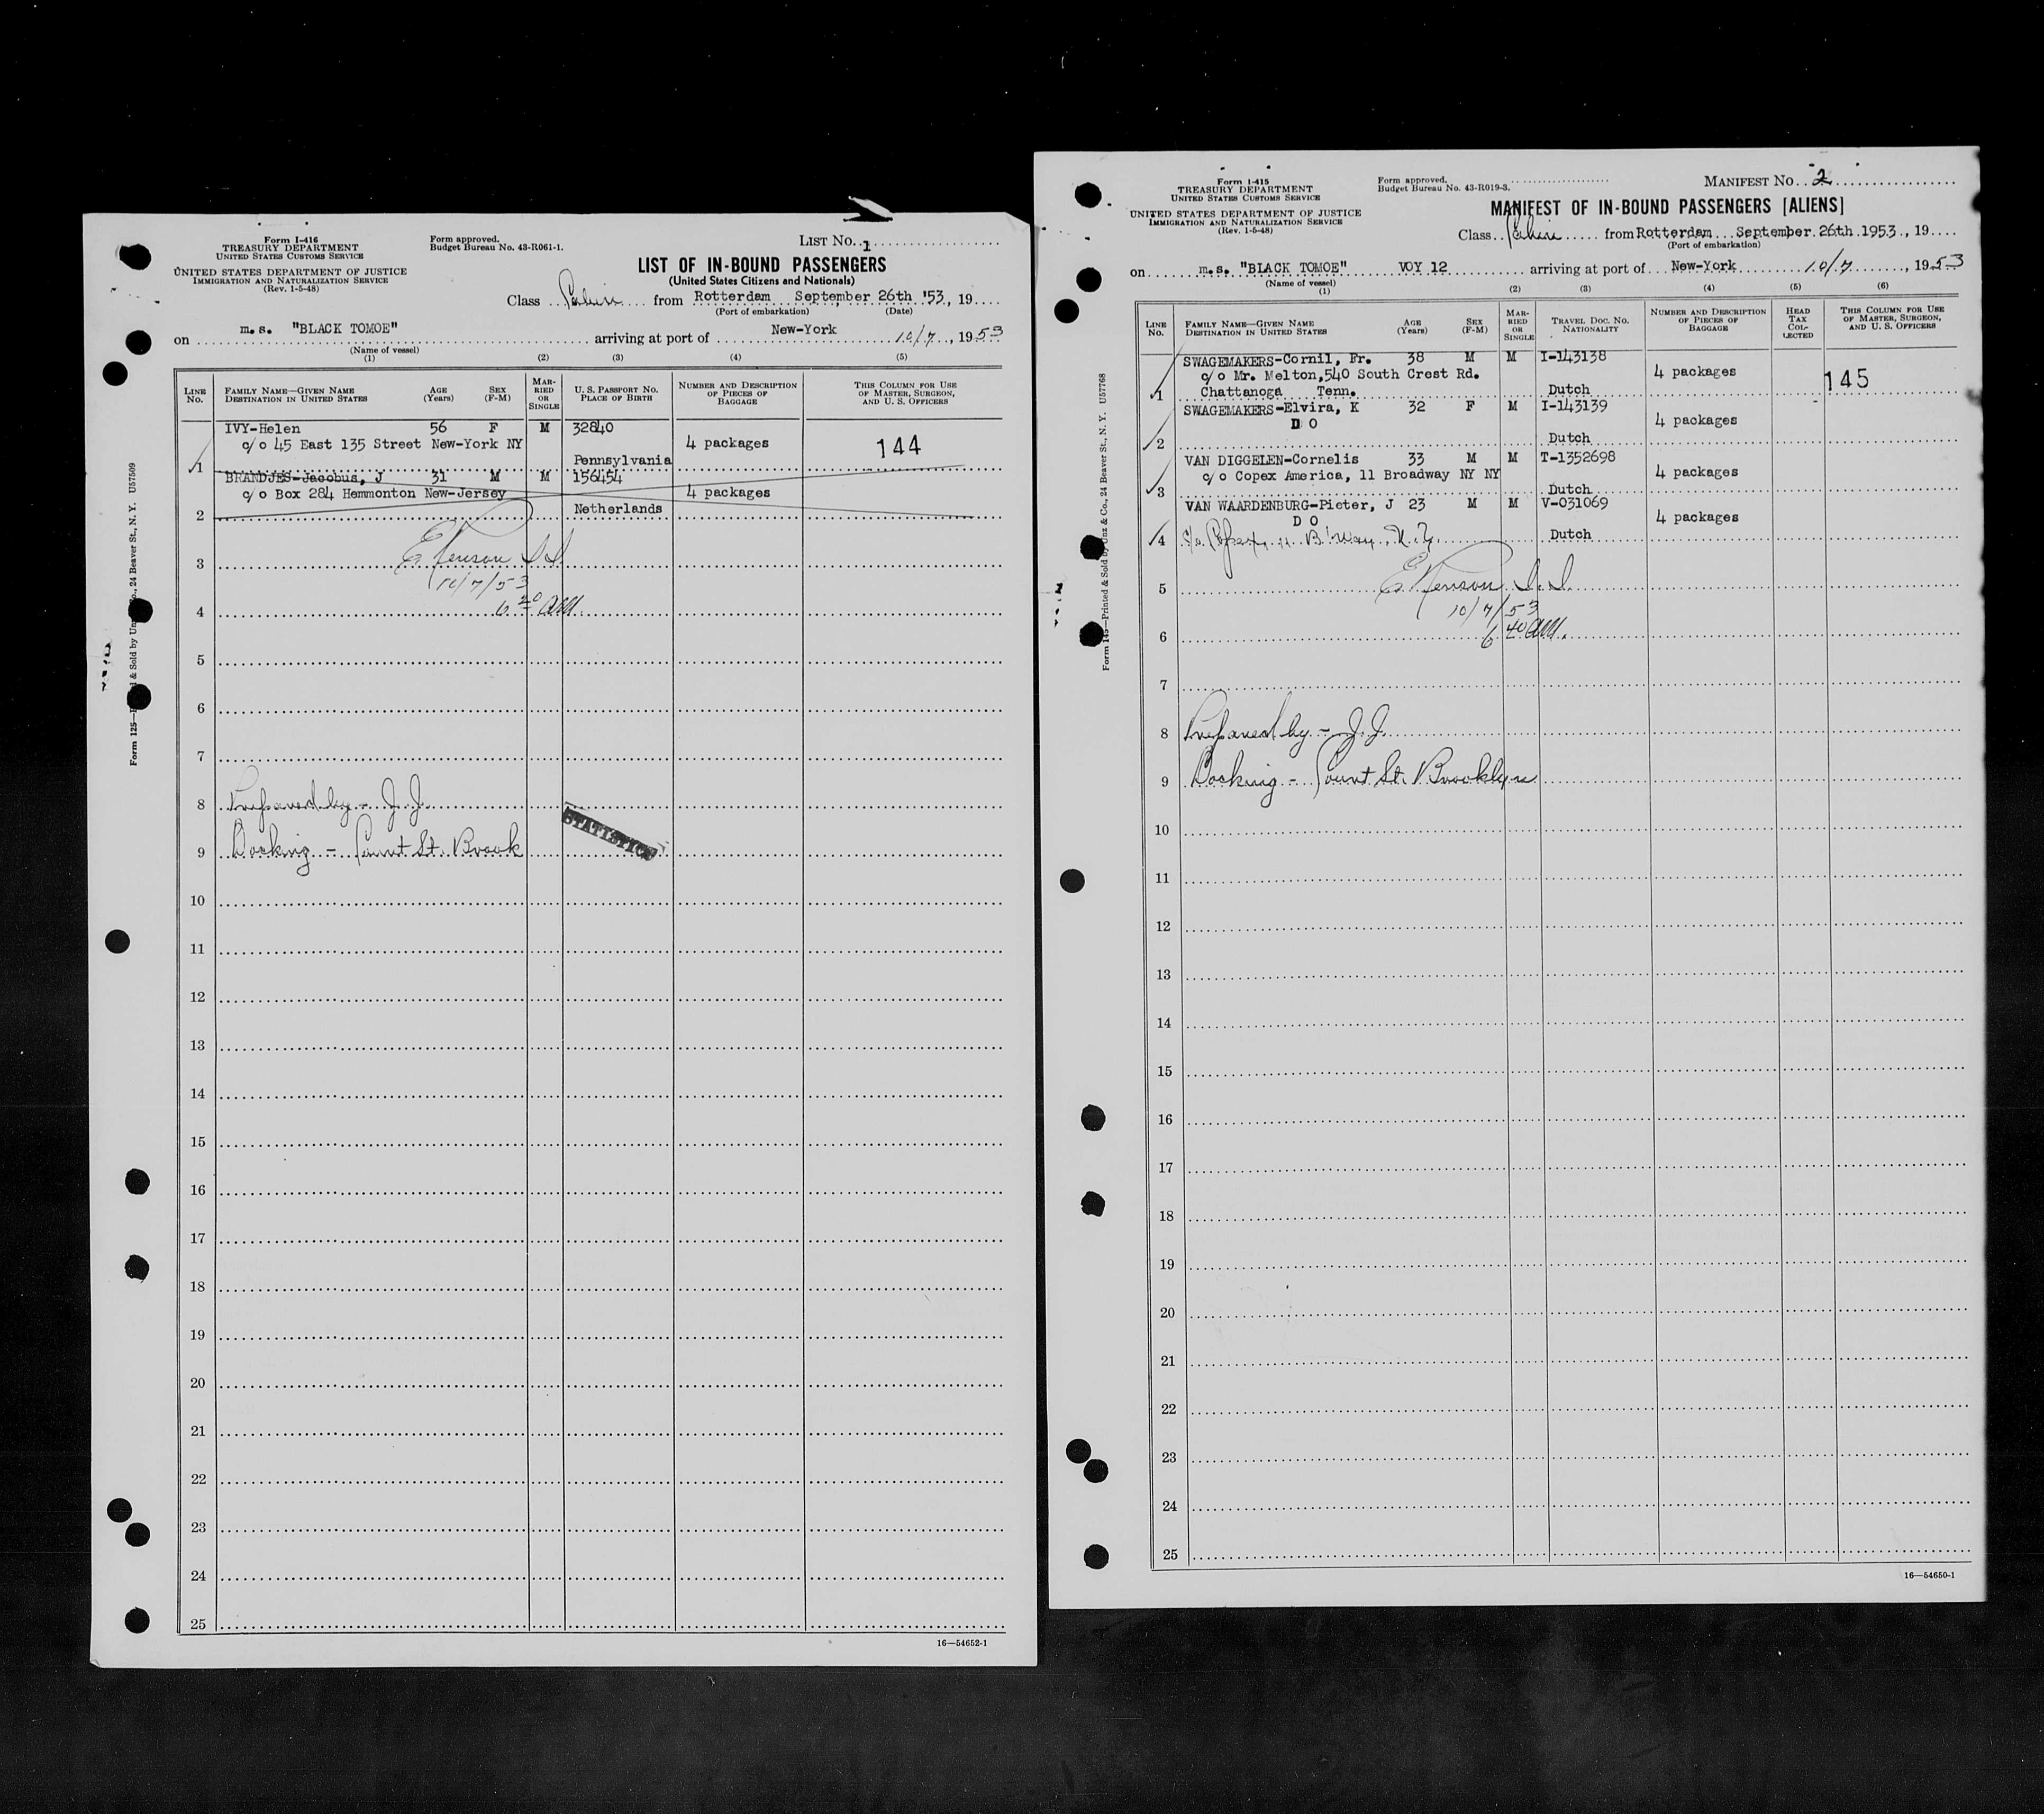 Form I-416
TREASURY DEPARTMENT
UNITED STATES CUSTOMS SERVICE
UNITED STATES DEPARTMENT OF JUSTICE
IMMIGRATION AND NATURALIZATION SERVICE
(Rev. 1-5-48)
Form approved.
Budget Bureau No. 43-R061-1.
LIST NO. 1
LIST OF IN-BOUND PASSENGERS
(United States Citizens and Nationals)
Class from Rotterdam September 26th '53, 19
(Port of embarkation) (Date)
on m.s. "BLACK TOMOE" arriving at port of New-York 10/7, 1953
(Name of vessel)
(1) (2) (3) (4) (5)
LINE NO.
FAMILY NAME—GIVEN NAME
DESTINATION IN UNITED STATES
AGE (Years)
SEX (F-M)
MARRIED OR SINGLE
U. S. PASSPORT NO.
PLACE OF BIRTH
NUMBER AND DESCRIPTION OF PIECES OF BAGGAGE
THIS COLUMN FOR USE OF MASTER, SURGEON, AND U. S. OFFICERS
IVY-Helen 56 F M 32840
c/o 45 East 135 Street New-York NY 4 packages 144
1 Pennsylvania
BRANDJES-Jacobus, J 31 M M 156454
c/o Box 284 Hemmonton New-Jersey 4 packages
2 Netherlands
3
10/7/53
4 AM
5
6
7
8 Prepared by - J.J.
9 Docking - Court St. Brook
STATISTICS
10
11
12
13
14
15
16
17
18
19
20
21
22
23
24
25
16—54652-1
U57509
Form I-415
TREASURY DEPARTMENT
UNITED STATES CUSTOMS SERVICE
UNITED STATES DEPARTMENT OF JUSTICE
IMMIGRATION AND NATURALIZATION SERVICE
(Rev. 1-5-48)
Form approved.
Budget Bureau No. 43-R019-3.
MANIFEST NO. 2
MANIFEST OF IN-BOUND PASSENGERS [ALIENS]
Class from Rotterdam September 26th 1953, 19
(Port of embarkation)
on m.s. "BLACK TOMOE" VOY 12 arriving at port of New-York 10/7, 1953
(Name of vessel)
(1) (2) (3) (4) (5) (6)
LINE NO.
FAMILY NAME—GIVEN NAME
DESTINATION IN UNITED STATES
AGE (Years)
SEX (F-M)
MARRIED OR SINGLE
TRAVEL DOC. NO.
NATIONALITY
NUMBER AND DESCRIPTION OF PIECES OF BAGGAGE
HEAD TAX COLLECTED
THIS COLUMN FOR USE OF MASTER, SURGEON, AND U. S. OFFICERS
SWAGEMAKERS-Cornil, Fr. 38 M M I-143138
c/o Mr. Melton,540 South Crest Rd. 4 packages 145
1 Chattanoga Tenn. Dutch
SWAGEMAKERS-Elvira, K 32 F M I-143139
D O 4 packages
2 Dutch
VAN DIGGELEN-Cornelis 33 M M T-1352698
c/o Copex America, 11 Broadway NY NY 4 packages
3 Dutch
VAN WAARDENBURG-Pieter, J 23 M M V-031069
D O 4 packages
4 c/o Copex, 11 B'way, N.Y. Dutch
5
10/7/53
6 6 40 AM.
7
8 Prepared by - J.J.
9 Docking - Court St. Brooklyn
10
11
12
13
14
15
16
17
18
19
20
21
22
23
24
25
16—54650-1
U57768